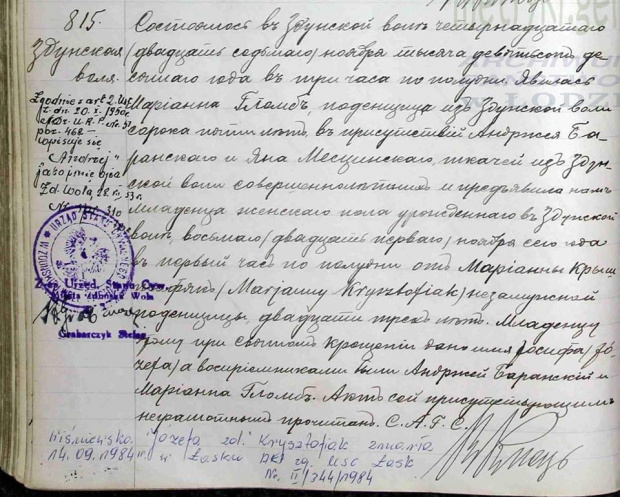 815.
Здунская
воля.
Состоялось въ Здунской волѣ четырнадцатаго
/двадцать седьмаго/ ноября тысяча девятьсотъ де-
сятаго года въ три часа по полудни. Явилась
Маріанна Гломбъ, поденщица изъ Здунской воли
сорока пяти лѣтъ, въ присутствіи Андржея Ба-
ранскаго и Яна Месцинскаго, ткачей изъ Здун-
ской воли совершеннолѣтнихъ и предъявила намъ
младенца женскаго пола урожденнаго въ Здунской
волѣ, восьмаго /двадцать перваго/ ноября сего года
въ первый часъ по полудни отъ Маріанны Крыш-
тофякъ /Marjanny Krysztofiak/ незамужной
поденщицы, двадцати трехъ лѣтъ. Младенцу
этому при святомъ крещеніи дано имя Іосифа /Jó-
zefa/ а воспріемниками были Андржей Баранскій и
Маріанна Гломбъ. Актъ сей присутствующимъ
неграмотнымъ прочитанъ. С. А. Г. С.
Zgodnie z art. 2. Ust.
z dn. 20. X. 1950r.
poz. 468 –
wpisuje się
"Andrzej"
jako imię ojca
Zd. Wola,
URZĄD STANU CYWILNEGO
Urzęd. Stanu Cyw.
Zduńska Wola
Grabarczyk Stefan
Wiśniewska Józefa zd. Krysztofiak zmarła
14.09.1984 r. w Łasku akt zg. USC Łask
Nr II/344/1984